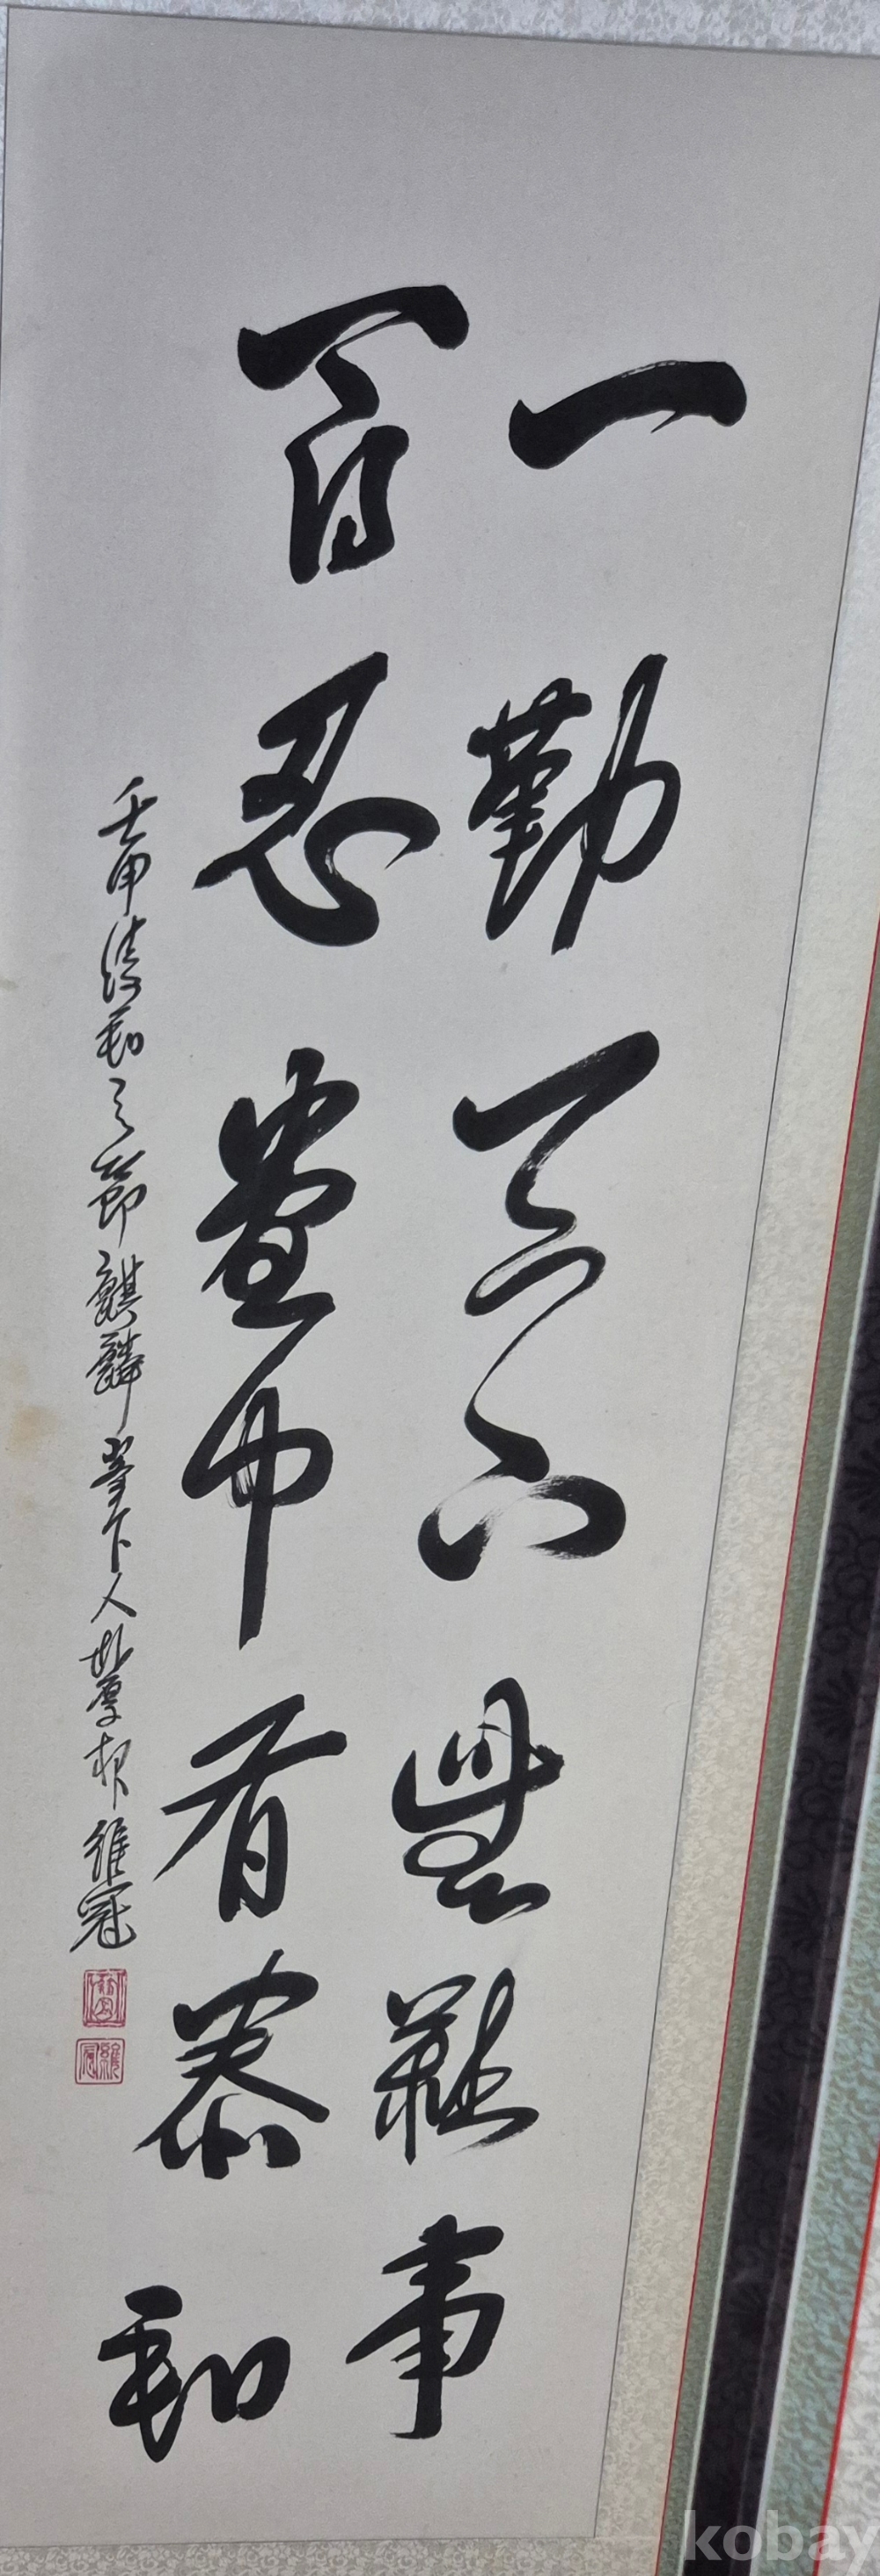 一勤天下無難事
百忍堂中有泰和
壬申清和之節麒麟峯下人 維冠
kobay